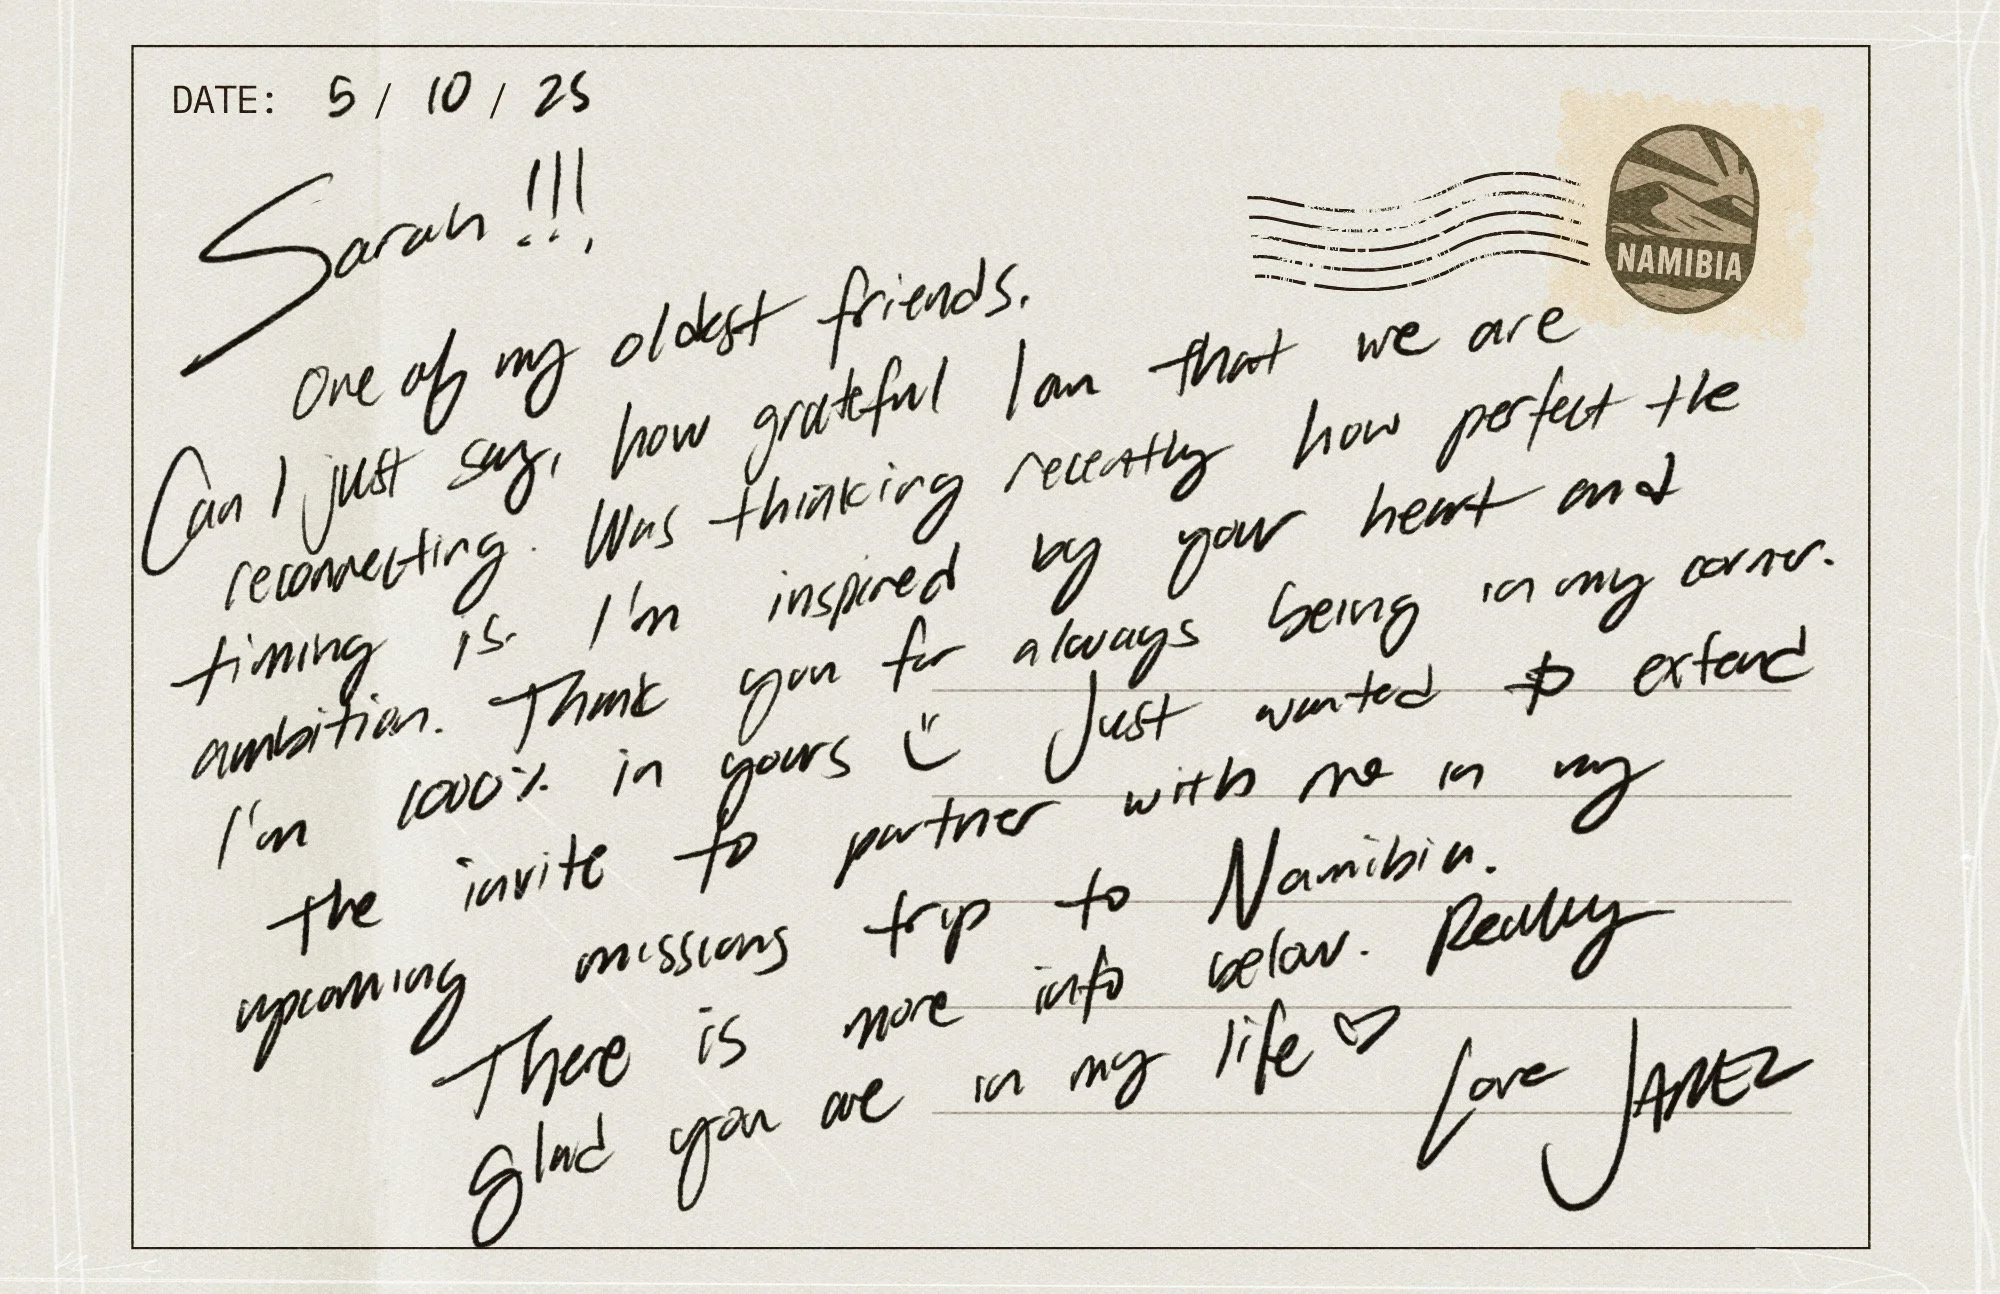 DATE: 5 / 10 / 25
Sarah !!!
NAMIBIA
One of my oldest friends.
Can I just say, how grateful I am that we are
reconnecting. Was thinking recently how perfect the
timing is. I'm inspired by your heart and
ambition. Thank you for always being in my corner.
I'm 1000% in yours Just wanted to extend
the invite to partner with me in my
upcoming missions trip to Namibia.
There is more info below. Really
glad you are in my life ♡ Love JAREZ